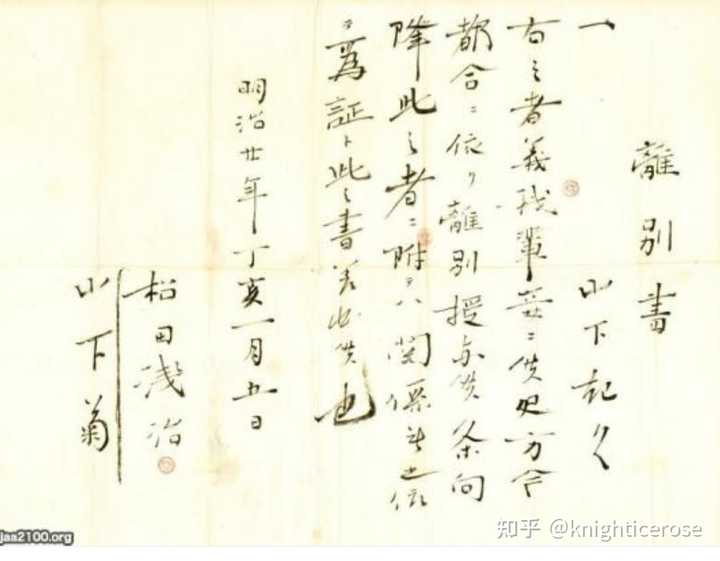 離別書
一 山下記久
右之者義我輩妻ニ候処方今
都合ニ依リ離別授与候条向
降此之者ニ附テハ関係無之依
為証ト此之書差出候也
明治廿年丁亥一月五日
松田淺治
山下菊
jaa2100.org
知乎 @knighticerose